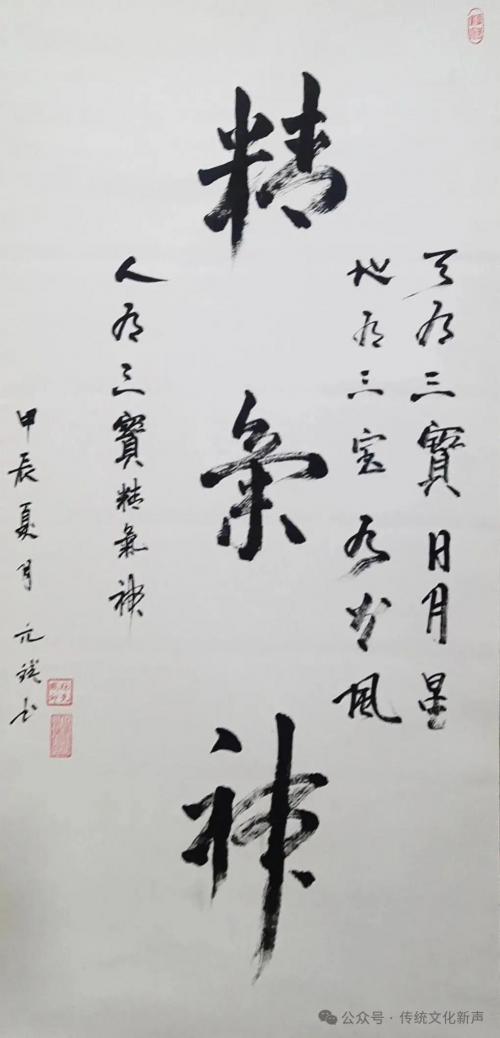 精氣神
天有三寶日月星
地有三宝水火風
人有三寶精氣神
甲辰夏月元书
公众号·传统文化新声